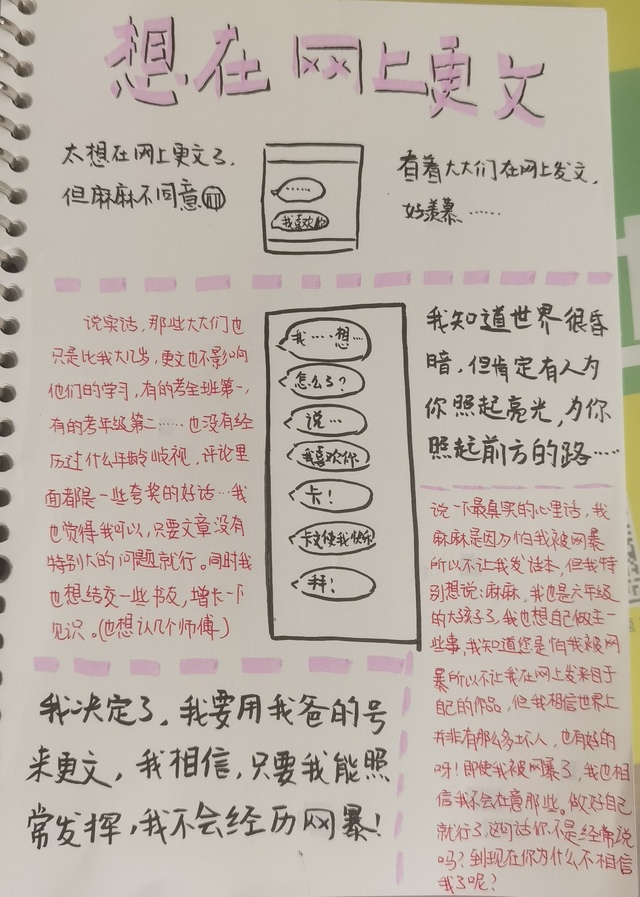 想在网上更文
太想在网上更文了,
但麻麻不同意
看着大大们在网上发文,
好羡慕……
……
我喜欢你
说实话,那些大大们也
只是比我大几岁,更文也不影响
他们的学习,有的考全班第一,
有的考年级第二……也没有经
历过什么年龄歧视,评论里
面都是一些夸奖的好话…我
也觉得我可以,只要文章没有
特别大的问题就行。同时我
也想结交一些书友,增长一下
见识。(也想认几个师傅)
我……想…
怎么了?
说…
我喜欢你
卡!
卡文使我快乐
我知道世界很昏
暗,但肯定有人为
你照起亮光,为你
照起前方的路……
说一下最真实的心里话,我
麻麻是因为怕我被网暴
所以不让我发话本,但我特
别想说:麻麻,我也是六年级
的大孩子了,我也想自己做主一
些事,我知道您是怕我被网
暴所以不让我在网上发来自于
自己的作品,但我相信世界上
并非有那么多坏人,也有好的
呀!即使我被网暴了,我也相
信我不会在意那些,做好自己
就行了,这句话你不是经常说
吗?到现在你为什么不相信
我了呢?
我决定了,我要用我爸的号
来更文,我相信,只要我能照
常发挥,我不会经历网暴!